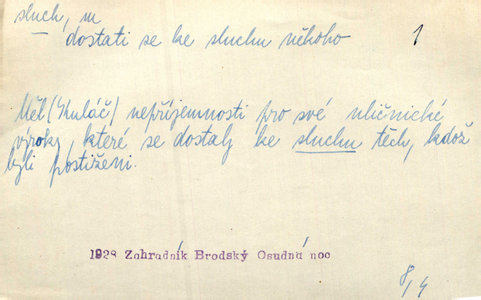 sluch, m
dostati se ke sluchu někoho 1
Měl (Skuláč) nepříjemnosti pro své uličnické
výroky, které se dostaly ke sluchu těch, kdož
byli postiženi.
1928 Zahradník Brodský Osudná noc
8/4